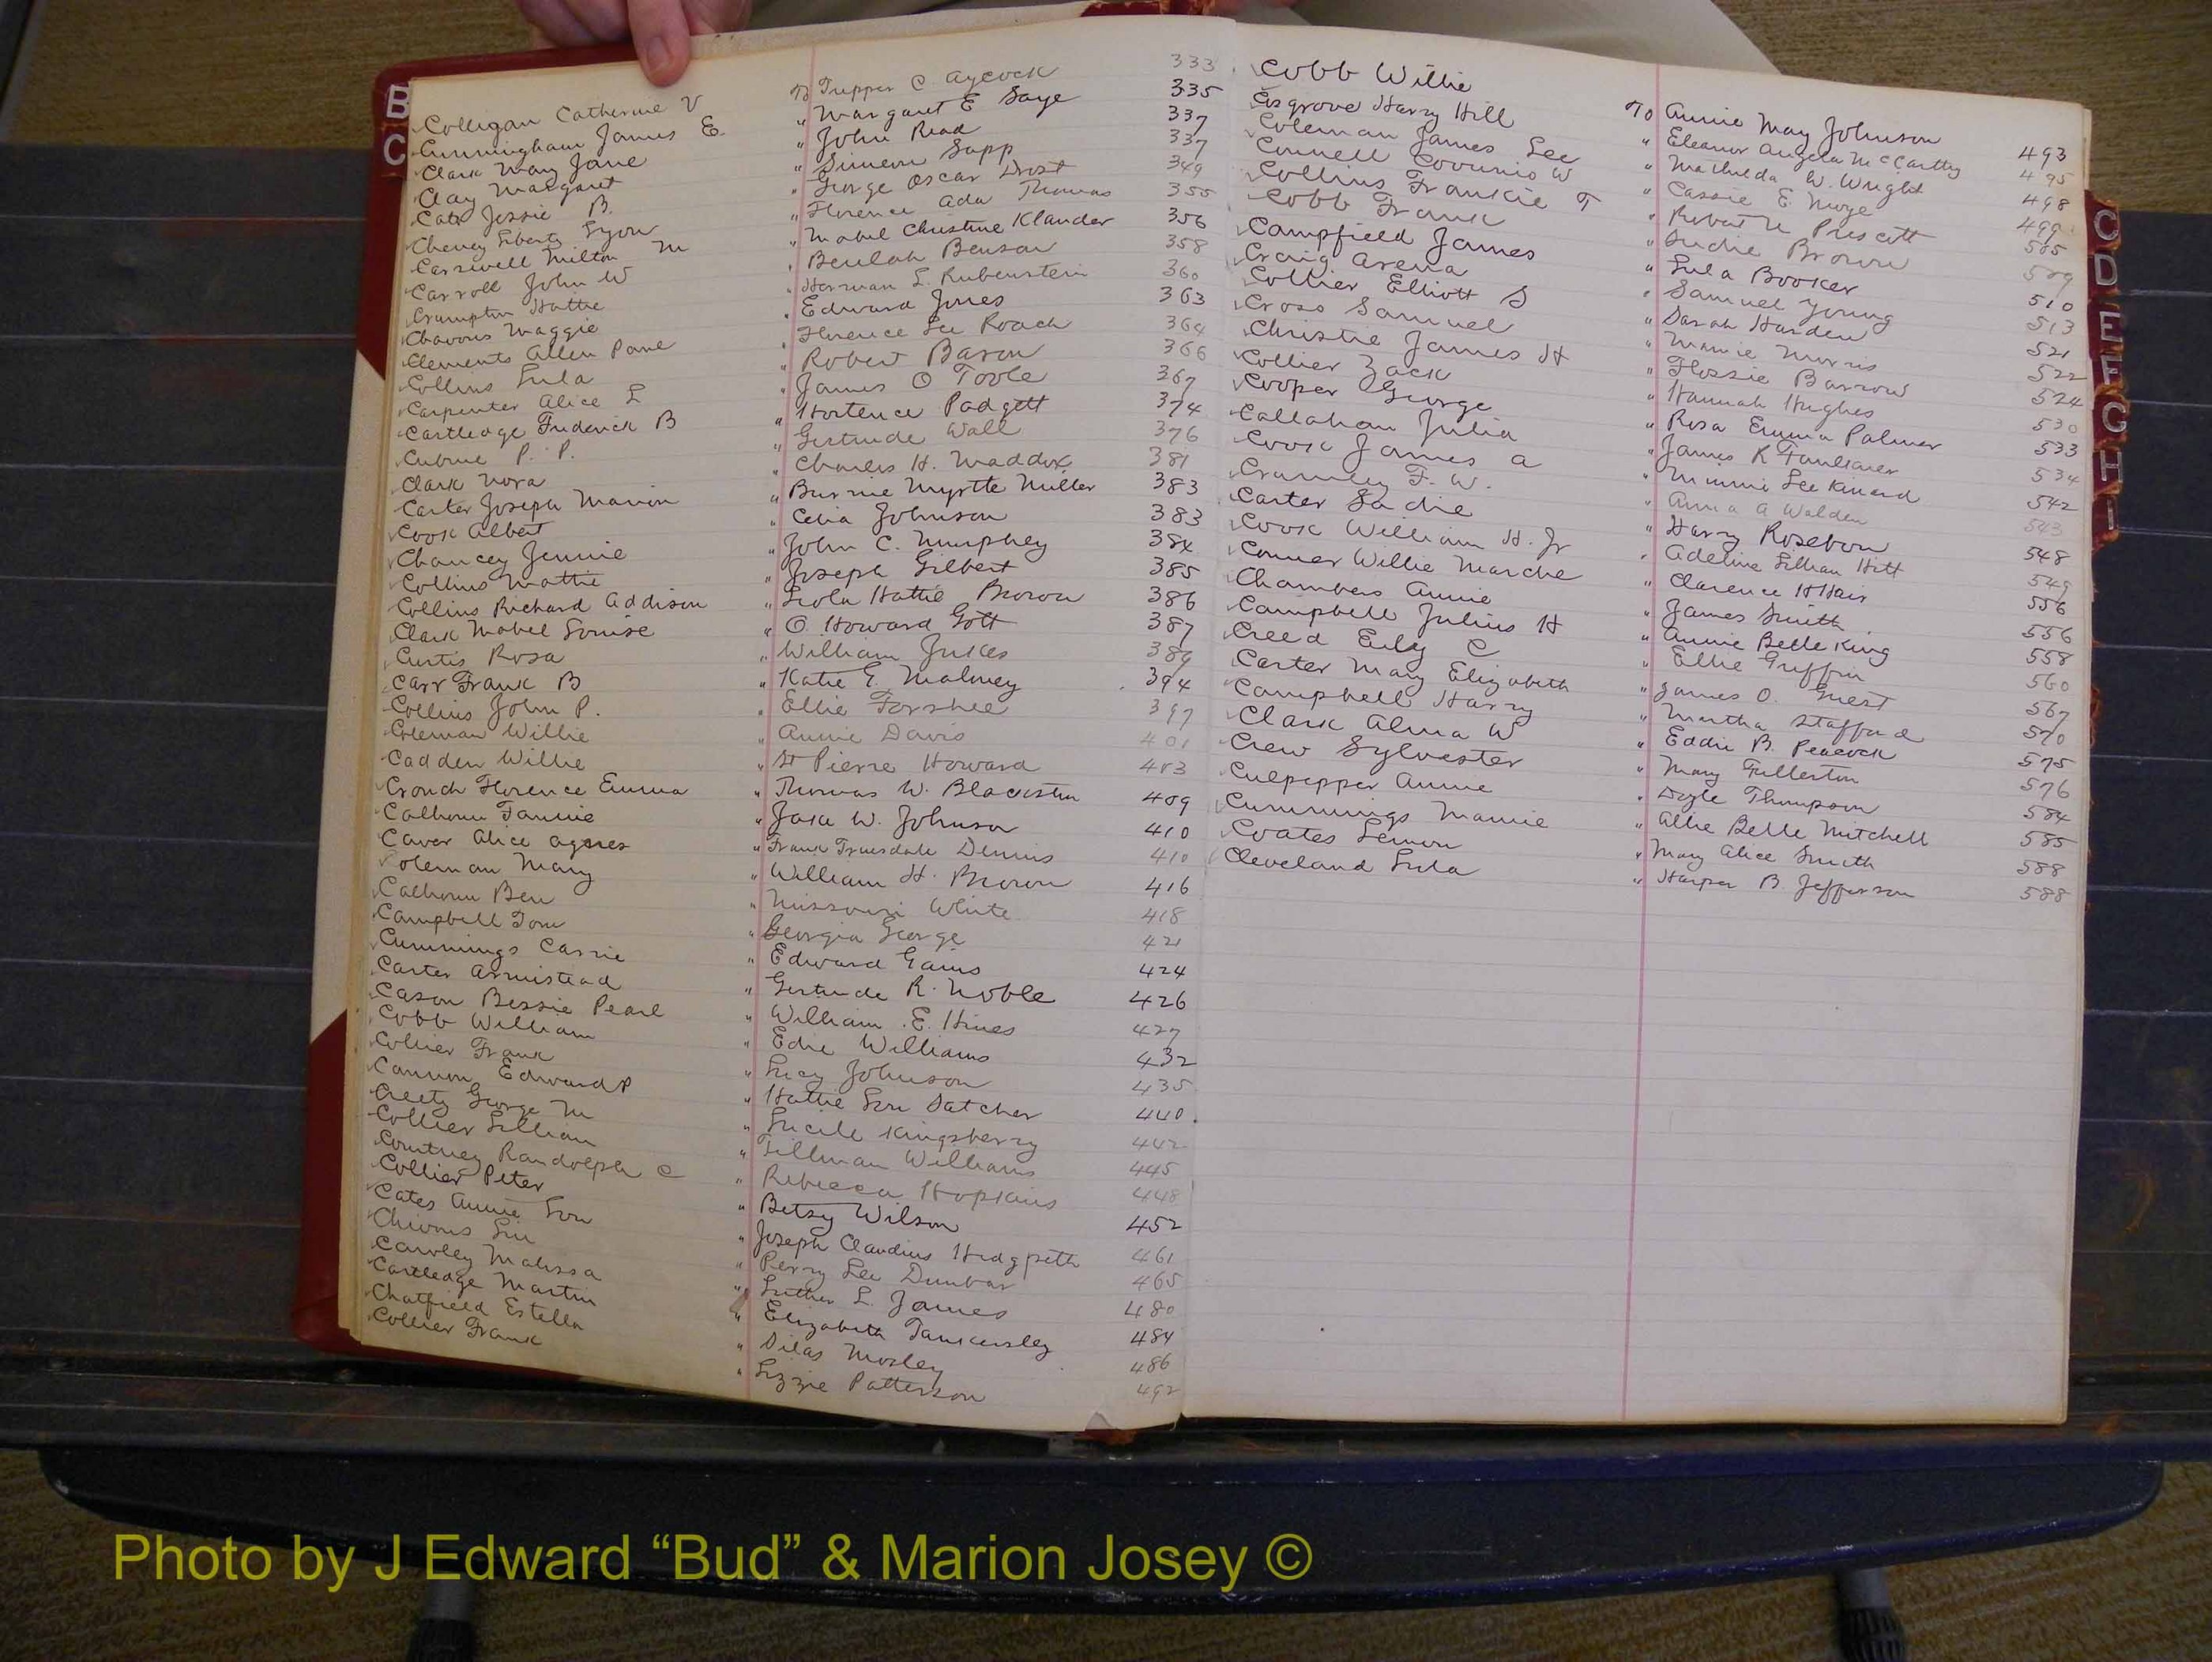 B
C
Colligan Catherine V To Tupper C. Aycock 333
Cunningham James E. " Margaret E Saye 335
Clark Mary Jane " John Read 337
Clay Margaret " Simeon Sapp 337
Cato Jessie B. " George Oscar Drost 349
Cheney Liberty Lyon " Florence Ada Thomas 355
Carswell Milton M " Mabel Christine Klauder 356
Carroll John W " Beulah Benson 358
Crumpton Hattie " Herman L. Rubenstein 360
Chavous Maggie " Edward Jones 363
Clements Allen Pane " Florence Lee Roach 364
Collins Lula " Robert Baron 366
Carpenter Alice L " James O Toole 367
Cartledge Frederick B " Hortence Padgett 374
P. P. " Gertrude Wall 376
Clark Nora " Charles H. Maddox 381
Carter Joseph Marion " Burnie Myrtte Miller 383
Cook Albert " Celia Johnson 383
Chancey Jennie " John C. Murphey 384
Collins Mattie " Joseph Gilbert 385
Collins Richard Addison " Leola Hattie Brown 386
Clark Mabel Louise " O. Howard Gott 387
Curtis Rosa " William Jukes 389
Carr Frank B " Katie E. Maloney 394
Collins John P. " Ellie Forshee 397
Coleman Willie " Annie Davis 401
Cadden Willie " St Pierre Howard 403
Crouch Florence Emma " Thomas W. Blackston 409
Calhoun Fannie " Jake W. Johnson 410
Caver Alice Agnes " Frank Truesdale Dennis 410
Coleman Mary " William H. Brown 416
Calhoun Ben " Missouri White 418
Campbell Tom " Georgia George 421
Cummings Carrie " Edward Gains 424
Carter Armistead " Gertrude R. Noble 426
Cason Bessie Pearl " William E. Hines 427
Cobb William " Edie Williams 432
Collier Frank " Lucy Johnson 435
Cannon Edward P " Hattie Lou Satcher 440
Creety George M " Lucile Kingsberry 442
Collier Lillian " Tillman Williams 445
Courtney Randolph C " Rebecca Hopkins 448
Collier Peter " Betsy Wilson 452
Cates Annie Lou " Joseph Claudius Hedgpeth 461
Chivous " Perry Lee Dunbar 465
Cawley Malissa " Luther L. James 480
Cartledge Martin " Elizabeth Tankersley 484
Chatfield Estella " Silas Mosley 486
Collier Frank " Lizzie Patterson 492
Cobb Willie To Annie May Johnson 493
Cosgrove Harry Hill " Eleanor Angela McCarthy 495
Coleman James Lee " Mathilda W. Wright 498
Connell W " Cassie E. 499
Collins Frankie T " Robert N Prescott 505
Cobb Frank " Suchie Brown 509
Campfield James " Lula Booker 510
Craig Arena " Samuel Young 513
Collier Elliott S " Sarah Harden 521
Cross Samuel " Mamie Morris 522
Christie James H " Flossie Barrow 524
Collier Zack " Hannah Hughes 530
Cooper George " Rosa Emma Palmer 533
Callahan Julia " James K Faulkner 534
Cook James A " Minnie Lee Kinard 542
Crumley F. W. " Anna A Walden 543
Carter Sadie " Harry Rosebom 548
Cook William H. Jr " Adeline Lillian Hitt 549
Conner Willie Marche " Clarence H Hair 556
Chambers Annie " James Smith 556
Campbell Julius H " Annie Belle King 558
Creed C " Ellie Griffin 560
Carter Mary Elizabeth " James O. Guest 567
Campbell Harry " Martha Stafford 570
Clark Alma W " Eddie B. Peacock 575
Crew Sylvester " Mary Fullerton 576
Culpepper Annie " Doyle Thompson 584
Cummings Mamie " Allie Belle Mitchell 585
Coates Lemon " Mary Alice Smith 588
Cleveland Lula " Harper B. Jefferson 588
C
D
E
F
G
H
I
Photo by J Edward “Bud” & Marion Josey ©